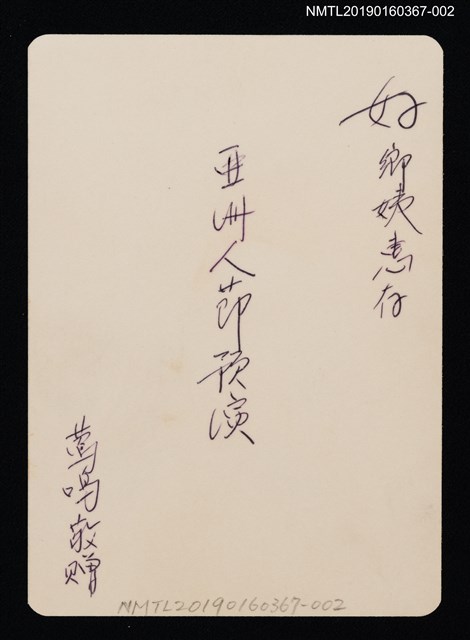 NMTL20190160367-002
好鄉姨惠存
亚洲人節預演
鶯鳴敬赠
NMTL20190160367-002